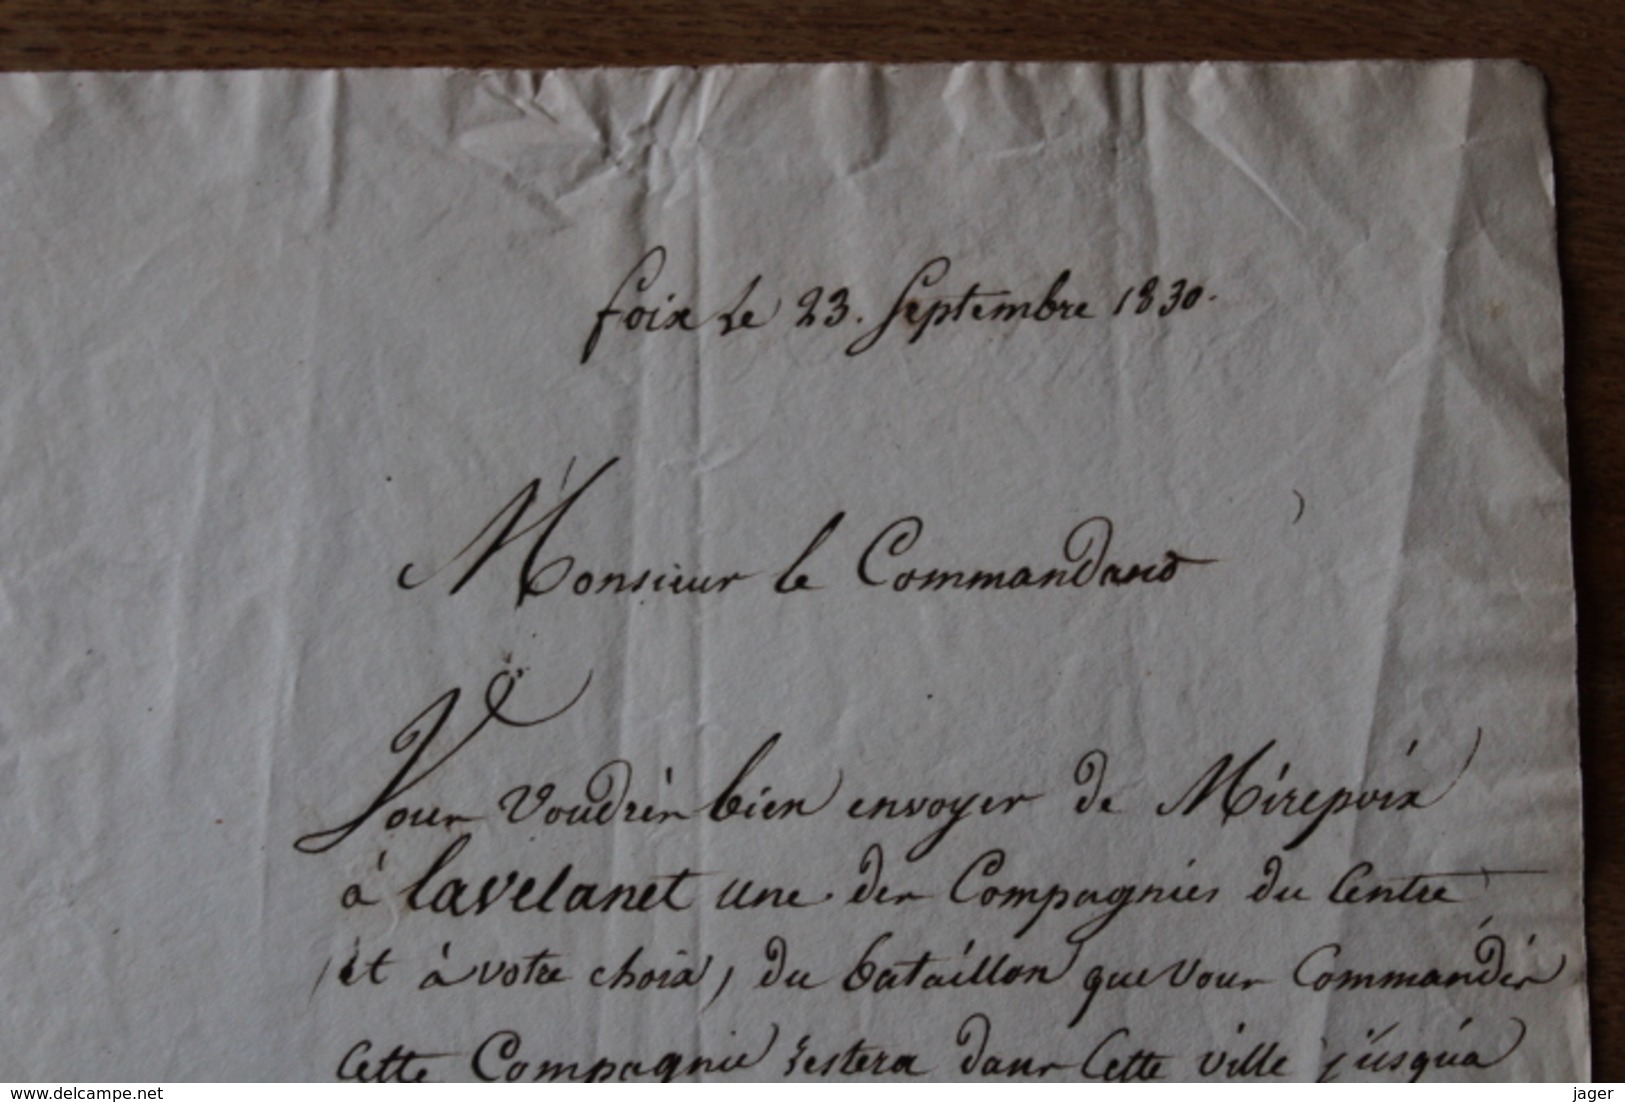 foix le 23. Septembre 1830.
Monsieur le Commandant
Vous voudrés bien envoyer de Mirepoix
à lavelanet une des Compagnies du Centre
et à votre choix, du bataillon que vous Commandés
Cette Compagnie restera dans Cette ville jusqu'à
www.delcampe.net
jager